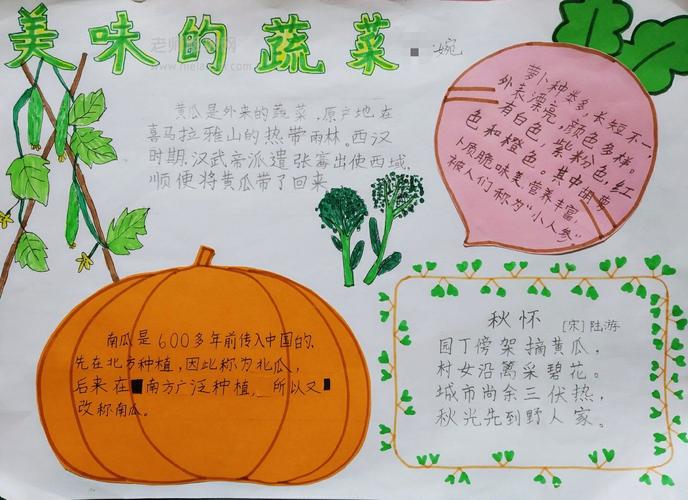 美味的蔬菜
婉
黄瓜是外来的蔬菜，原产地在
喜马拉雅山的热带雨林。西汉
时期，汉武帝派遣张骞出使西域，
顺便将黄瓜带了回来。
萝卜种类多，长短不一，
外表漂亮，颜色多样。
有白色，紫粉色，红
色和橙色。其中胡萝
卜质脆味美，营养丰富，
被人们称为“小人参”
南瓜是600多年前传入中国的，
先在北方种植，因此称为北瓜，
后来在南方广泛种植，所以又
改称南瓜。
秋怀
[宋]陆游
园丁傍架摘黄瓜，
村女沿篱采碧花。
城市尚余三伏热，
秋光先到野人家。